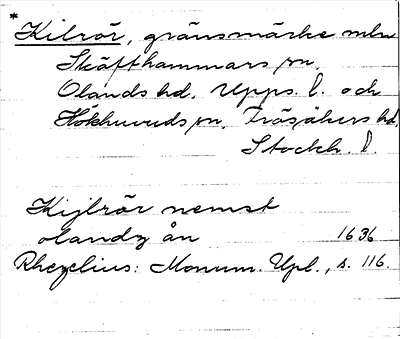 *Kilrör, gränsmärke mln
Skäfthammars sn,
Olands hd, Upps. l. och
Hökhuvuds sn, Frösåkers hd,
Stockh. l.
Kijlrör nemst
olandz ån 1636
Rhezelius: Monum. Upl., s. 116.